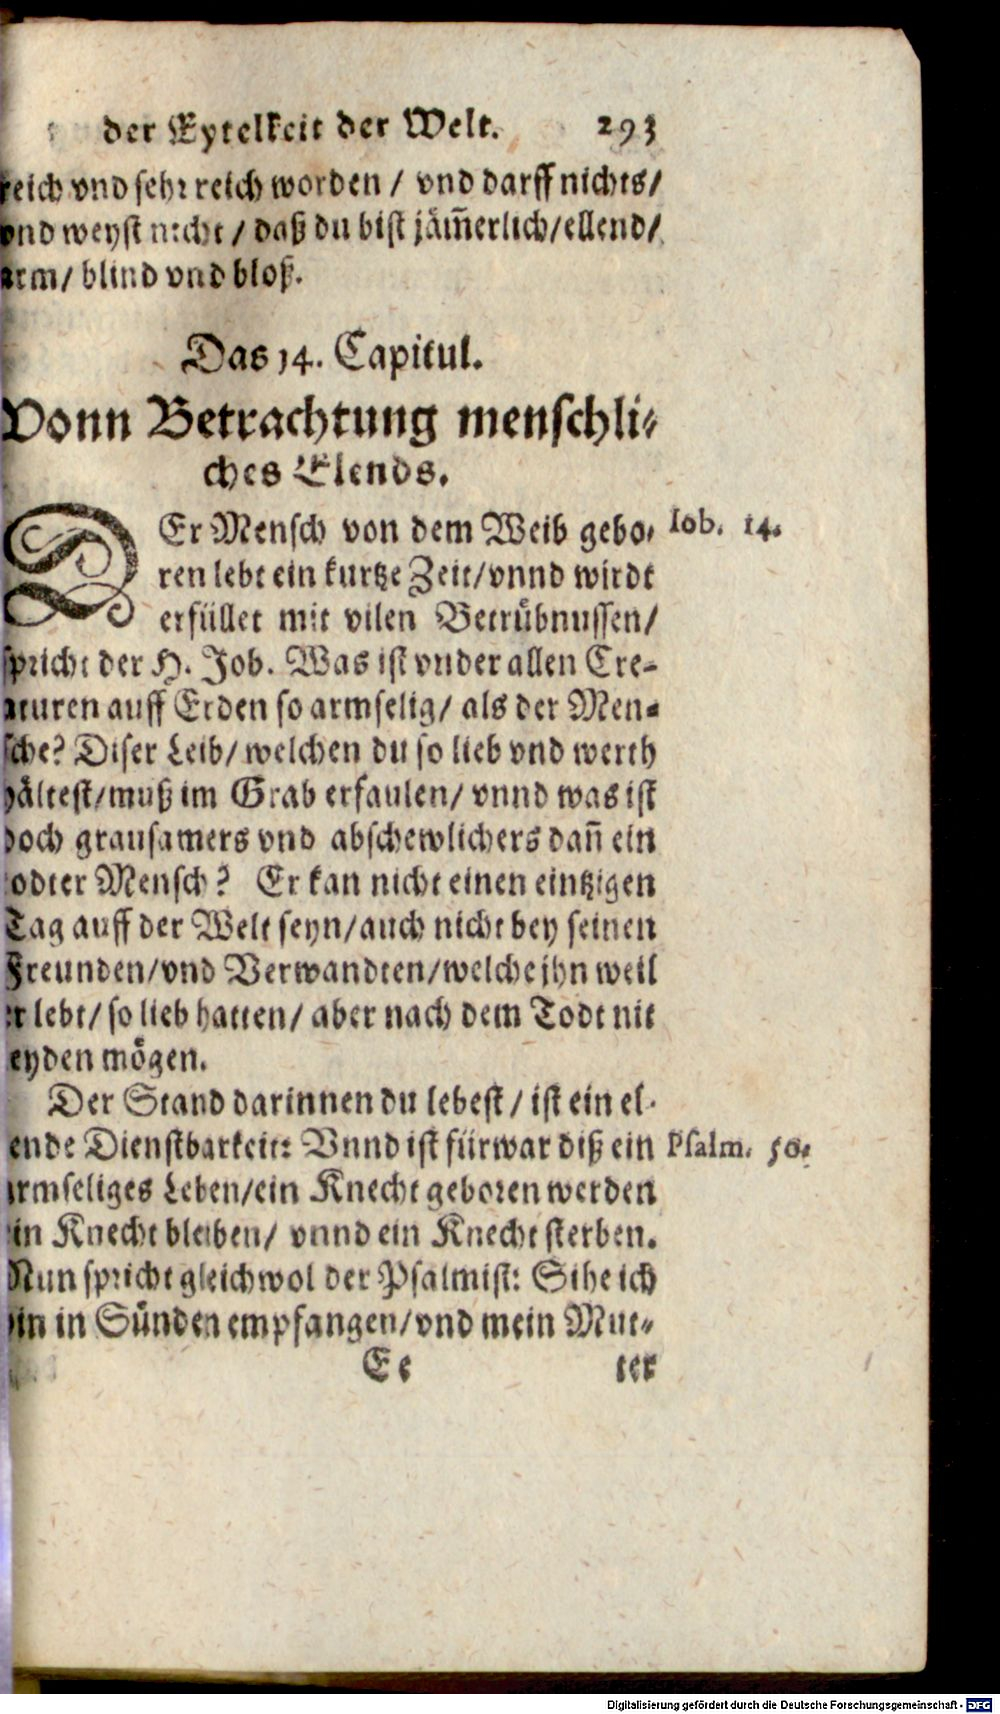 der Eytelkeit der Welt. 293
reich vnd sehr reich worden / vnd darff nichts/
vnd weyst nicht / daß du bist jäm̃erlich/ellend/
arm/ blind vnd bloß.
Das 14. Capitul.
Vonn Betrachtung menschli-
ches Elends.
DEr Mensch von dem Weib gebo- Iob. 14.
ren lebt ein kurtze Zeit/vnnd wirdt
erfüllet mit vilen Betrübnussen/
spricht der H. Job. Was ist vnder allen Cre-
aturen auff Erden so armselig/ als der Men-
sche? Diser Leib/ welchen du so lieb vnd werth
hältest/muß im Grab erfaulen/ vnnd was ist
doch grausamers vnd abschewlichers dañ ein
todter Mensch? Er kan nicht einen eintzigen
Tag auff der Welt seyn/auch nicht bey seinen
Freunden/vnd Verwandten/welche jhn weil
er lebt/ so lieb hatten/ aber nach dem Todt nit
leyden mögen.
Der Stand darinnen du lebest / ist ein el-
ende Dienstbarkeit: Vnnd ist fürwar diß ein Psalm. 50.
armseliges Leben/ein Knecht geboren werden
ein Knecht bleiben/ vnnd ein Knecht sterben.
Nun spricht gleichwol der Psalmist: Sihe ich
bin in Sünden empfangen/vnd mein Mut-
Ee ter
Digitalisierung gefördert durch die Deutsche Forschungsgemeinschaft - DFG